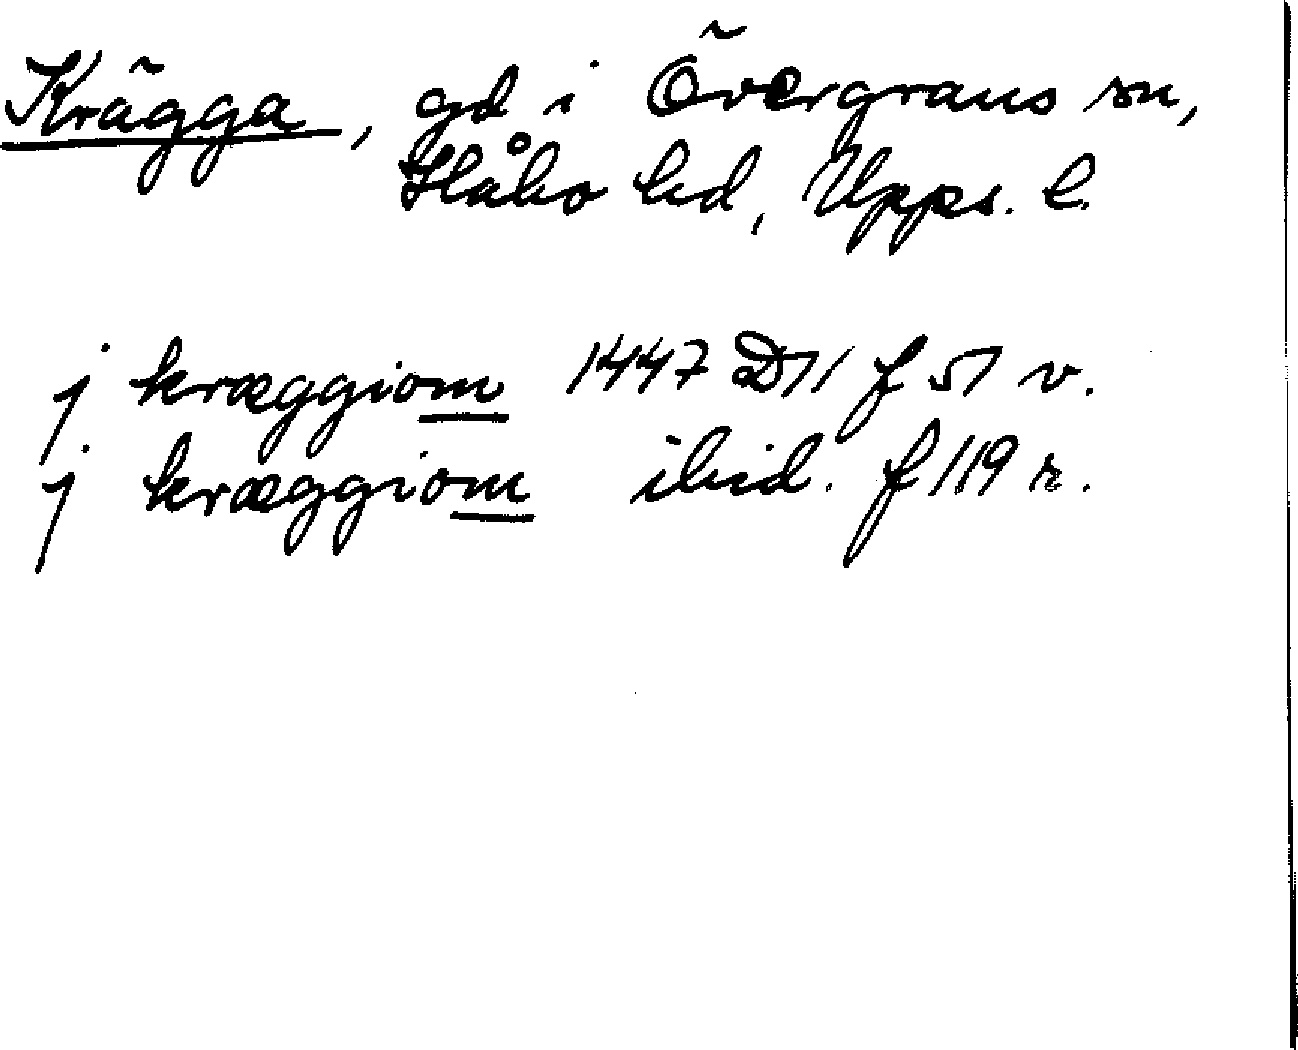 Krägga, gd i Övergrans sn,
Håbo hd, Upps. l.
j kræggiom 1447 D11 f 51 v.
j kræggiom ibid. f 119 r.